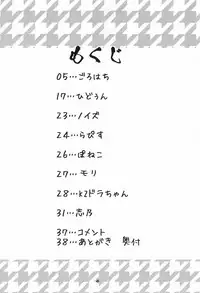 もくじ
05…ごろはち
17…ひどぅん
23…ノイズ
24…らぴす
26…ぽねこ
27…モリ
28…k2ドラちゃん
31…志乃
37…コメント
38…あとがき 奥付